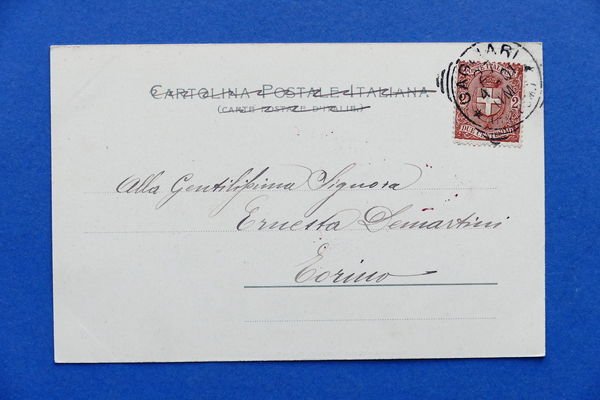 CARTOLINA POSTALE ITALIANA
(CARTE POSTALE D'ITALIE)
CAGLIARI
2
Alla Gentilissima Signora
Ernesta Demartini
Torino